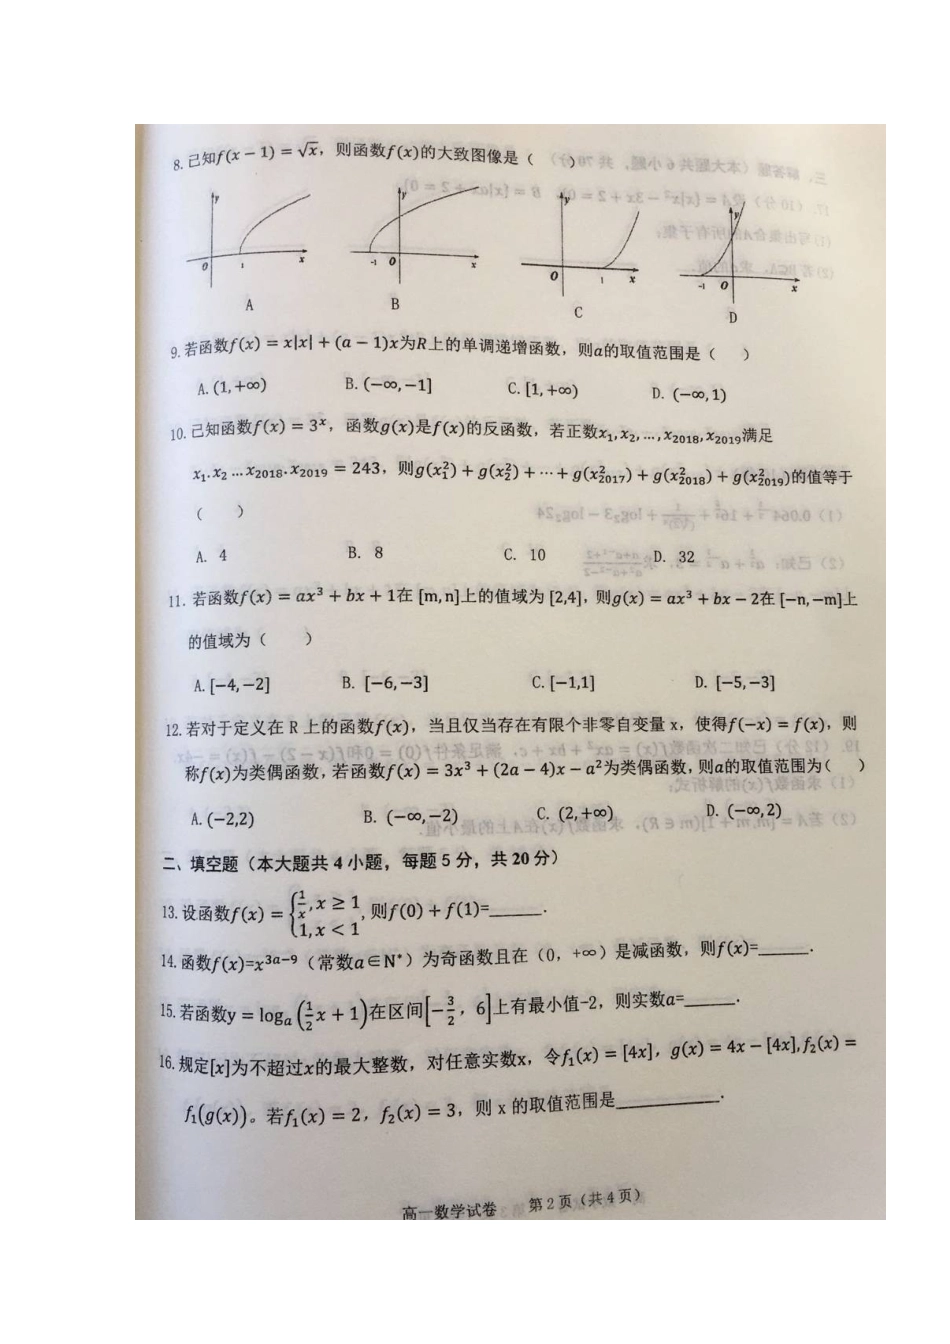 8.已知f(x－1)＝√x，则函数f(x)的大致图像是（　　）
y
0
1
x
y
-1
0
x
y
0
1
x
y
-1
0
x
A
B
C
D
9.若函数f(x)＝x|x|＋(a－1)x为R上的单调递增函数，则a的取值范围是（　　）
A.(1,+∞)　B.(−∞,−1]　C.[1,+∞)　D.(−∞,1)
10.已知函数f(x)＝3ˣ，函数g(x)是f(x)的反函数，若正数x₁,x₂,…,x₂₀₁₈,x₂₀₁₉满足
x₁·x₂…x₂₀₁₈·x₂₀₁₉＝243，则g(x₁²)＋g(x₂²)＋⋯＋g(x₂₀₁₇²)＋g(x₂₀₁₈²)＋g(x₂₀₁₉²)的值等于
（　　）
A. 4　B. 8　C. 10　D. 32
11.若函数f(x)＝ax³＋bx＋1在[m,n]上的值域为[2,4]，则g(x)＝ax³＋bx－2在[−n,−m]上
的值域为（　　）
A.[−4,−2]　B.[−6,−3]　C.[−1,1]　D.[−5,−3]
12.若对于定义在 R 上的函数f(x)，当且仅当存在有限个非零自变量 x，使得f(−x)＝f(x)，则
称f(x)为类偶函数，若函数f(x)＝3x³＋(2a－4)x－a²为类偶函数，则a的取值范围为（　　）
A.(−2,2)　B.(−∞,−2)　C.(2,+∞)　D.(−∞,2)
二、填空题（本大题共 4 小题，每题 5 分，共 20 分）
13.设函数f(x)＝{1/x,x≥1 1,x<1,则f(0)＋f(1)=______.
14.函数f(x)=x³ᵃ⁻⁹（常数a∈N*）为奇函数且在（0，+∞）是减函数，则f(x)=______.
15.若函数y＝logₐ(1/2x＋1)在区间[−3/2，6]上有最小值-2，则实数a=______.
16.规定[x]为不超过x的最大整数，对任意实数x，令f₁(x)＝[4x]，g(x)＝4x－[4x],f₂(x)＝
f₁(g(x))。若f₁(x)＝2，f₂(x)＝3，则 x 的取值范围是____________.
高一数学试卷　第 2 页（共 4 页）